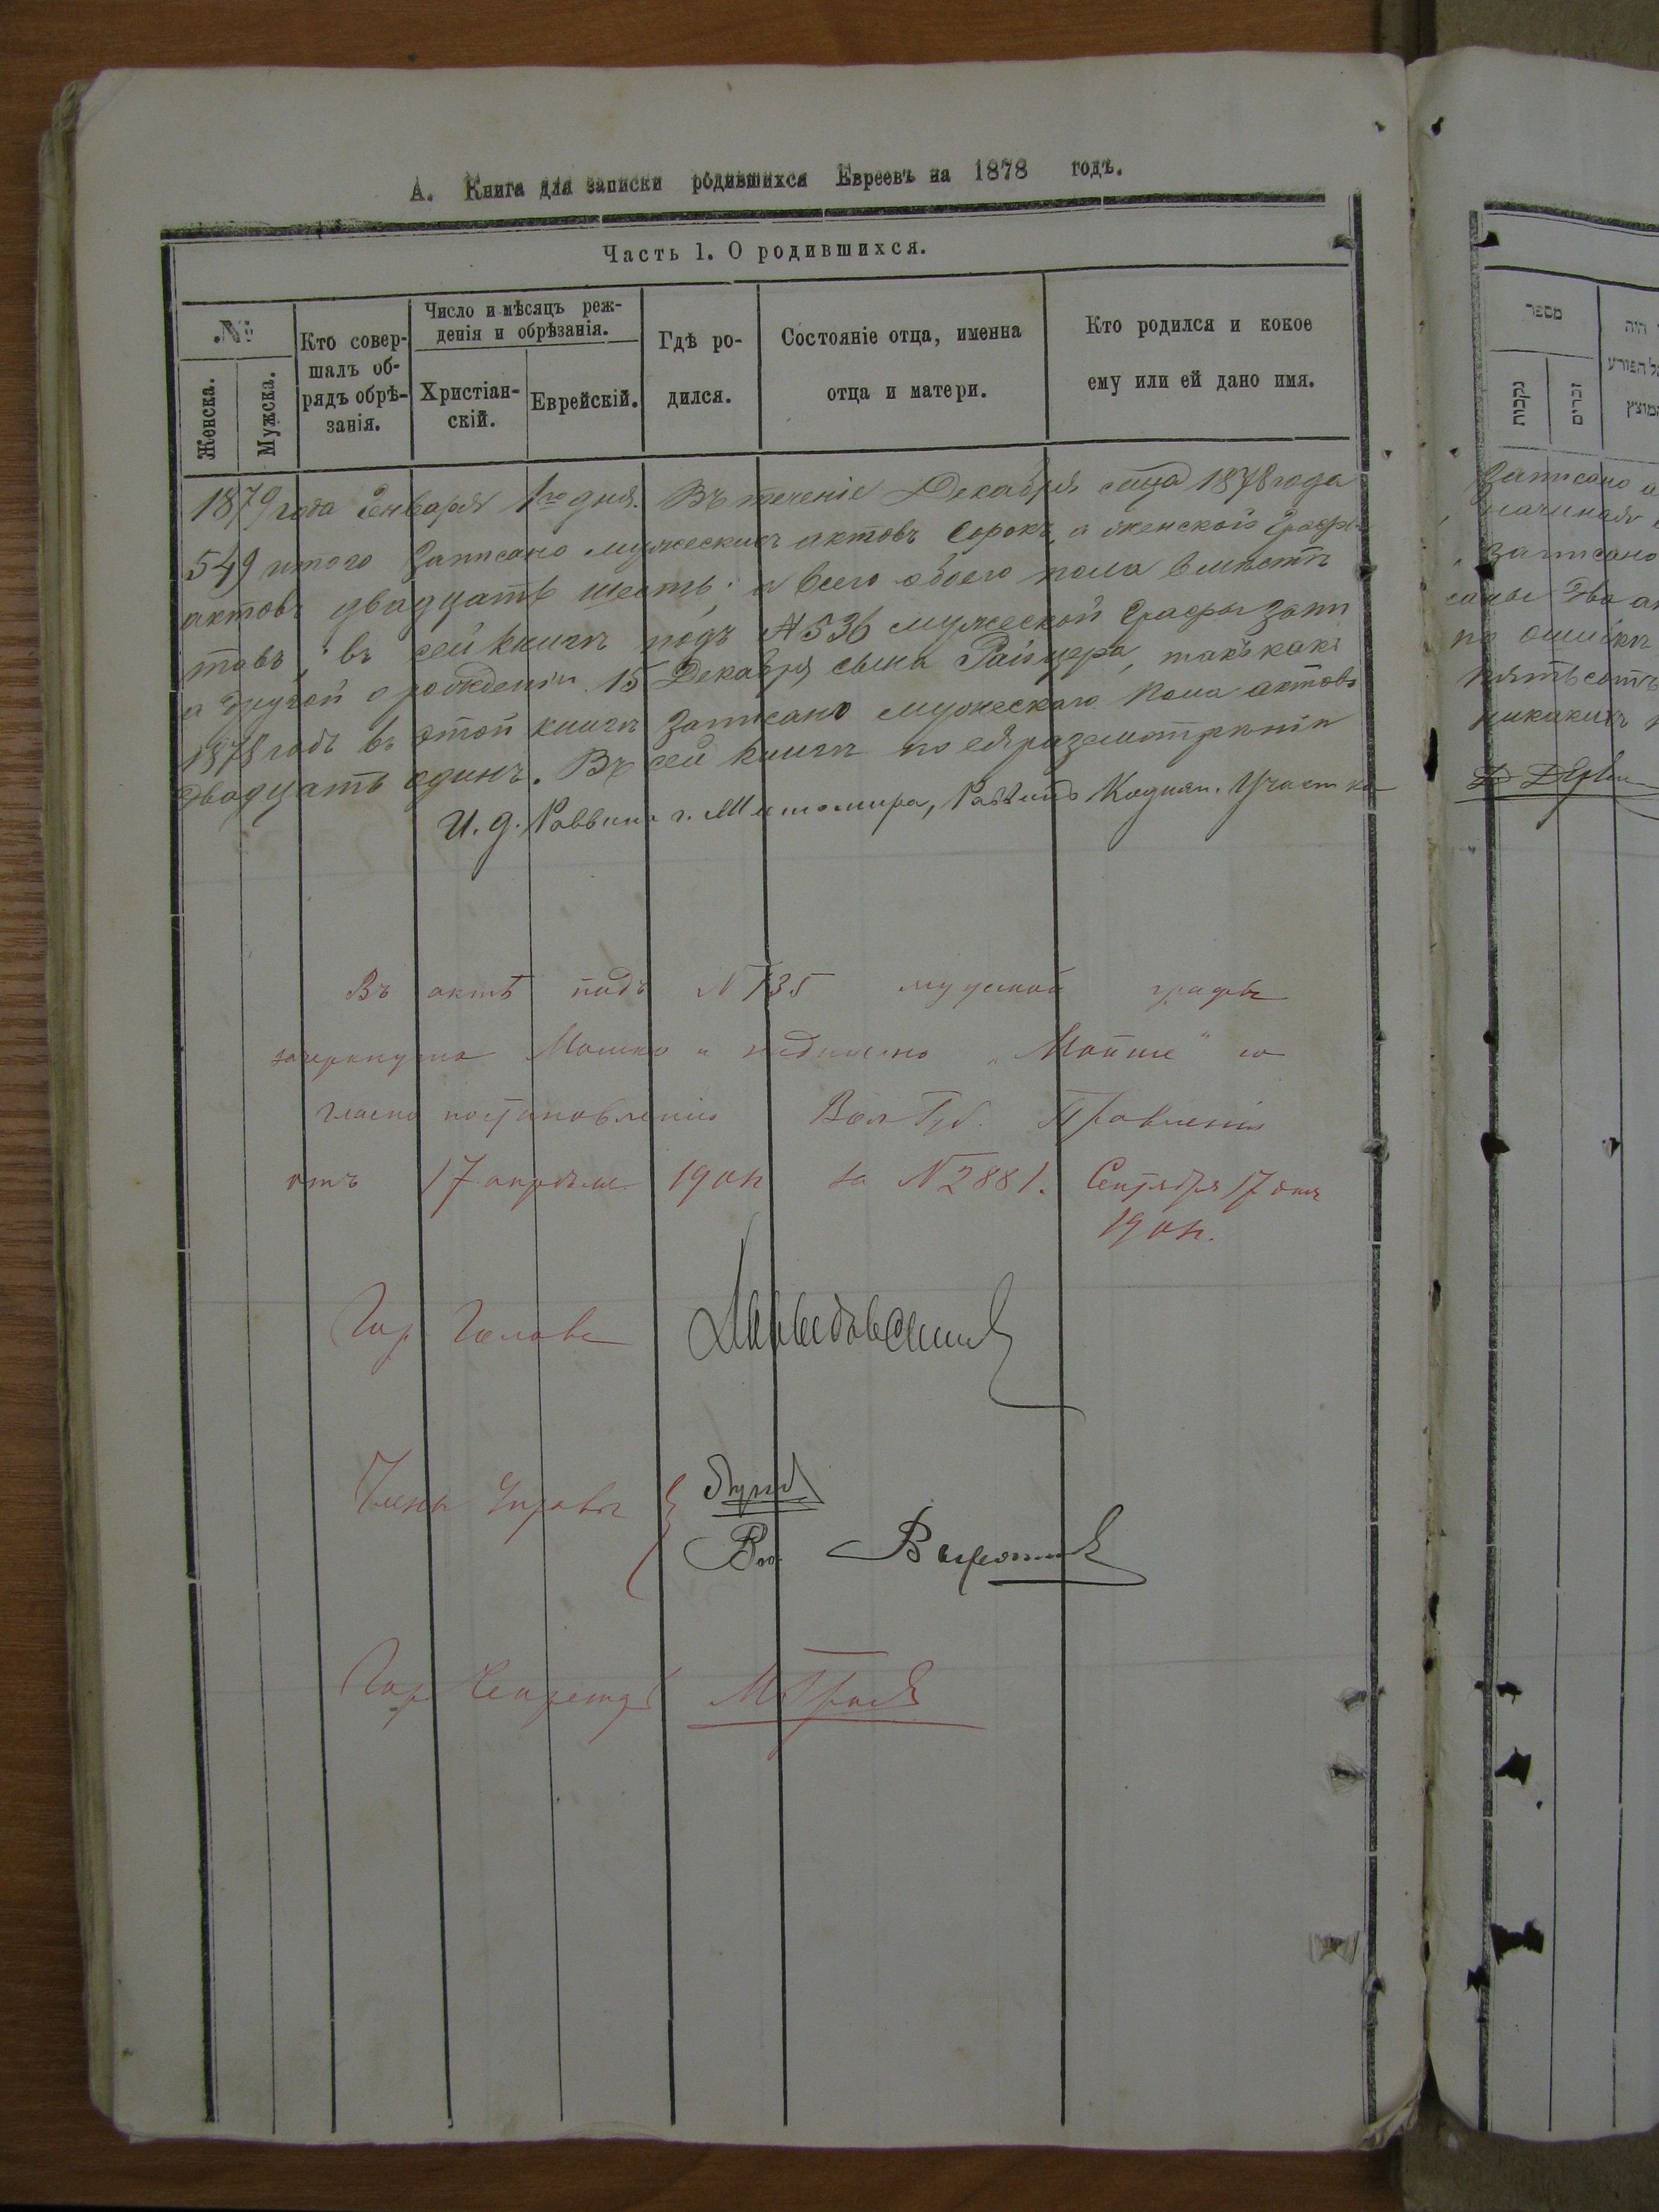 А. Книга для записки родившихся Евреевъ на 1878 годъ.
Часть 1. О родившихся.
№
Женска.
Мужска.
Кто совер-
шалъ об-
рядъ обрѣ-
занія.
Число и мѣсяцъ реж-
денія и обрѣзанія.
Христіан-
скій.
Еврейскій.
Гдѣ ро-
дился.
Состояніе отца, именна
отца и матери.
Кто родился и кокое
ему или ей дано имя.
1879 года Января 1го дня. Въ теченіе Декабря 1878 года
549 итого Записано мужескихъ актовъ Сорокъ, а женской Графы
актовъ двадцать шесть; а всего обоего пола вмѣстѣ
товъ; въ сей книгѣ подъ № 536 мужеской Графы Запи
а другой о рожденіи 15 Декабря сына Райцера, такъ какъ
1878 годъ въ этой книгѣ Записано мужескаго пола актовъ
двадцать одинъ. Въ сей книгѣ по ея разсмотрѣніи
И. д. Раввина г. Житомира, Раввинъ Кодня. Участка
Въ актѣ подъ № 135 мужской графы
зачеркнуто Мошко и надписано „Мойше" со
гласно постановленію Вол Губ. Правленія
отъ 17 апрѣля 190 за № 2881. Сентября 17 дня
190
Гор Голова
Члены Управы
Гор Секретарь
מספר
נקבות
זכרים
Записано
начиная
записано
саны два
по ошибкѣ
пятьсотъ
никакихъ